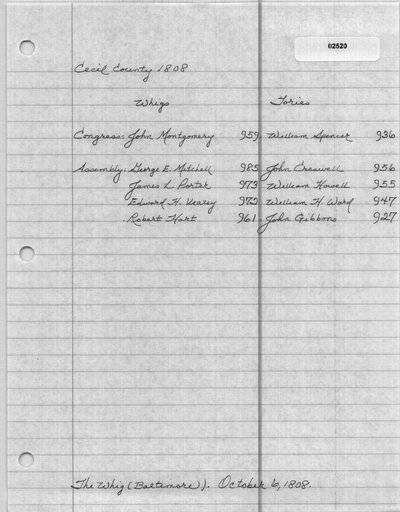 02520
Cecil County 1808
Whigs Tories
Congress: John Montgomery 959 William Spencer 936
Assembly: George E. Mitchell 985 John Creswell 956
James L. Porter 973 William Howell 955
Edward H. Veazey 972 William H. Ward 947
Robert Hart 961 John Gibbons 927
The Whig (Baltimore). October 6, 1808.